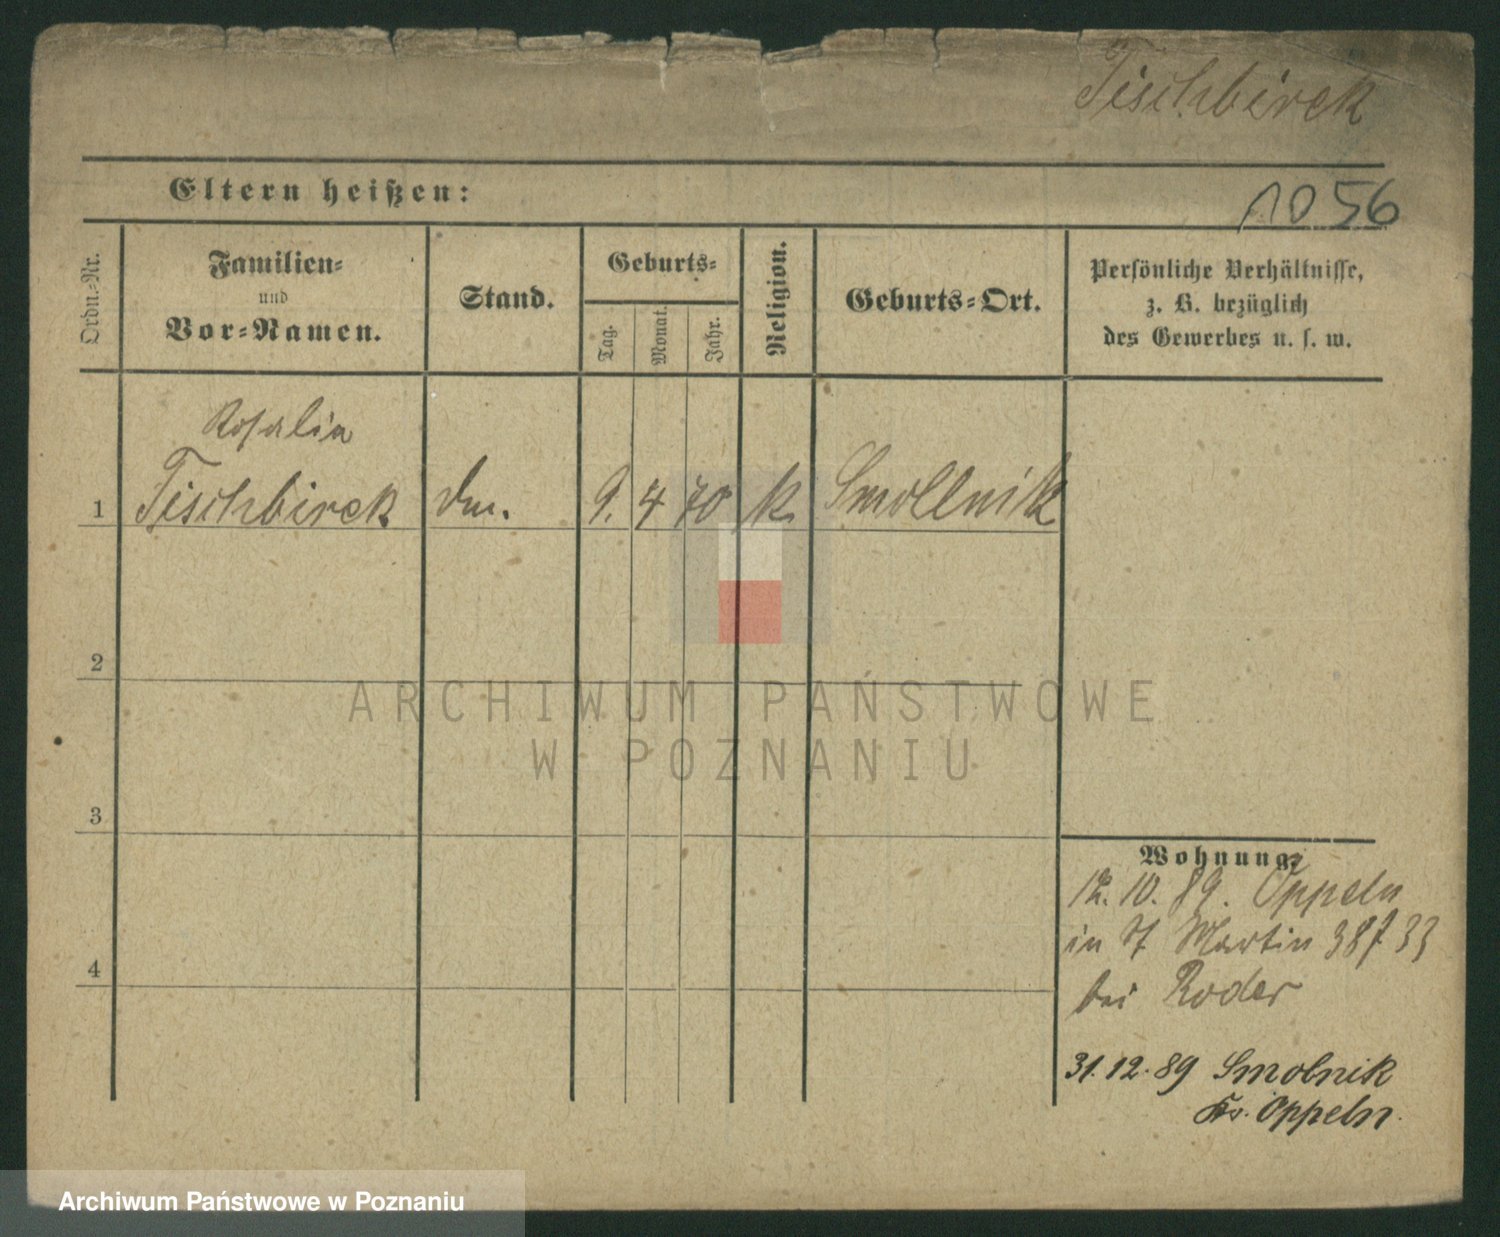 Tischbirek
Eltern heißen:
1056
Ordn.-Nr.
Familien-
und
Vor-Namen.
Stand.
Geburts-
Tag.
Monat.
Jahr.
Religion.
Geburts-Ort.
Persönliche Verhältnisse,
z. B. bezüglich
des Gewerbes u. s. w.
Rosalia
1 Tischbirek 9. 4 70 k. Smollnik
2
ARCHIWUM PAŃSTWOWE
W POZNANIU
3
Wohnung.
12. 10. 89. Oppeln
in St Martin 33
4
bei Roder
31.12.89 Smolnik
Kr. Oppeln.
Archiwum Państwowe w Poznaniu